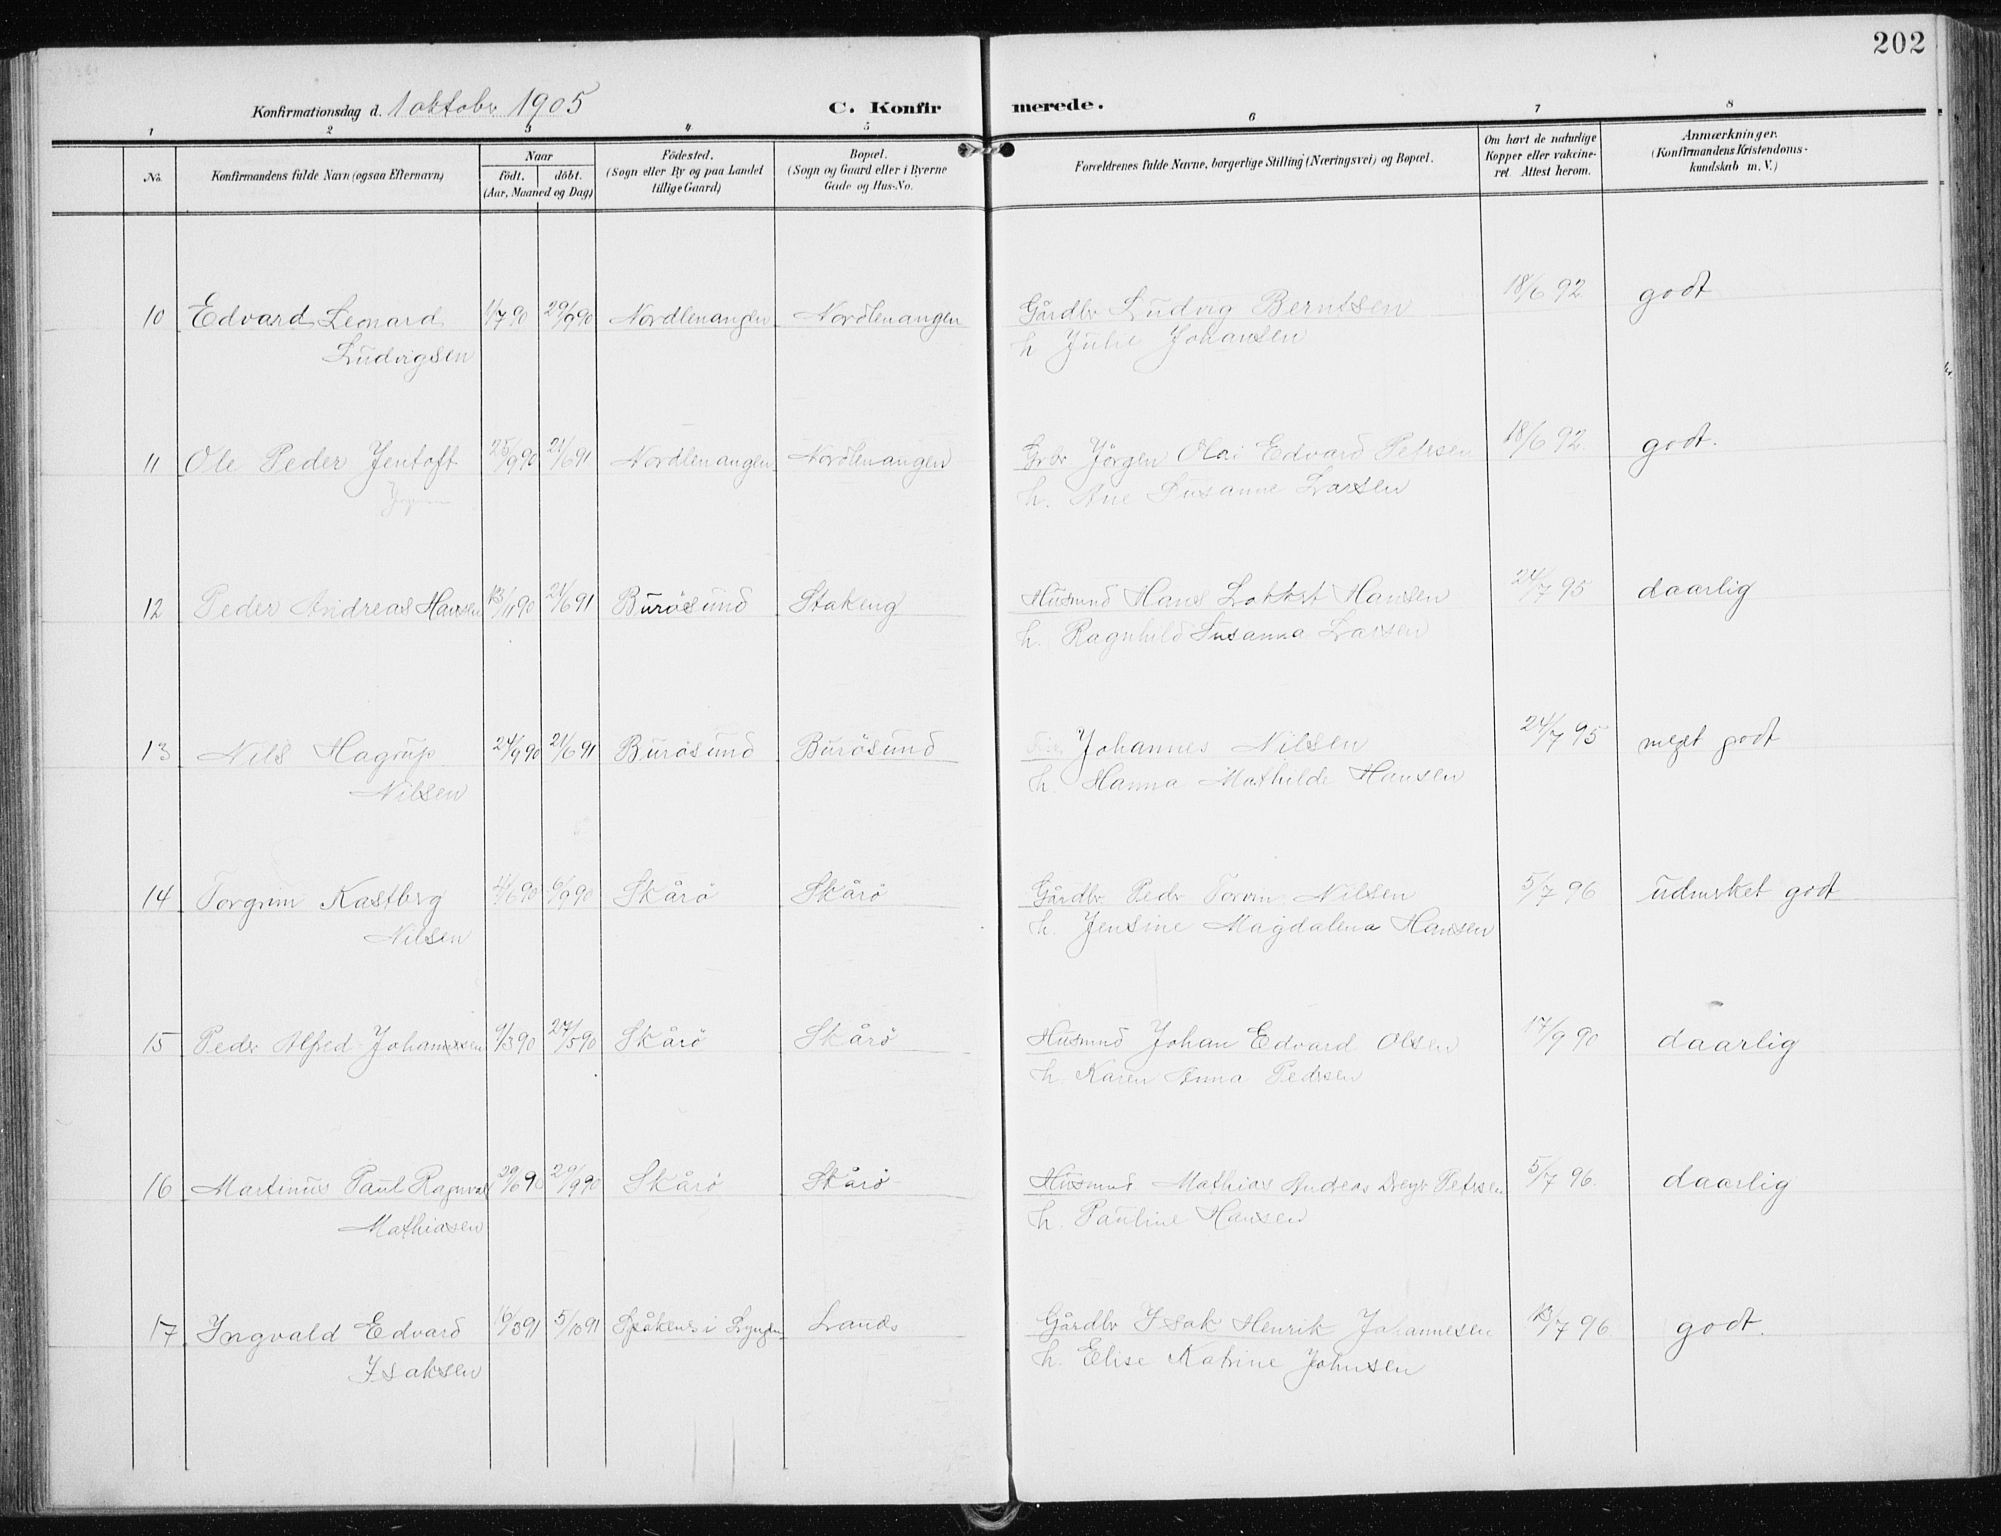 202
Konfirmationsdag d. 1 oktober 1905
C. Konfirmerede.
1 2 3 4 5 6 7 8
No.
Konfirmandens fulde Navn (ogsaa Efternavn)
Naar
födt. döbt.
(Aar, Maaned og Dag)
Födested.
(Sogn eller By og paa Landet
tillige Gaard)
Bopæl.
(Sogn og Gaard eller i Byerne
Gade og Hus-No.
Forældrenes fulde Navne, borgerlige Stilling (Næringsvei) og Bopæl.
Om havt de naturlige
Kopper eller vakcine-
ret. Attest herom.
Anmærkninger.
(Konfirmandens Kristendoms-
kundskab m. V.)
10 Edvard Leonard 1/7 90 29/9 90 Nordlenangen Nordlenangen Gårdbr Ludvig Berntsen 18/6 92 godt
Ludvigsen h Julie Johansen
11 Ole Peder Jentoft 25/9 90 21/6 91 Nordlenangen Nordlenangen Grbr Jörgen Olai Edvard Petersen 18/6 92. godt.
h. Ane Susanne Larsen
12 Peder Andreas Hansen 13/11 90 21/6 91 Burösund Stakeng Husmnd Hans Hansen 24/7 95 daarlig
h. Ragnhild Susanna Larsen
13 Nils Hagrup 24/9 90 21/6 91 Burösund Burösund Johannes Nilsen 24/7 95 meget godt
Nilsen h. Hanna Mathilde Hansen
14 Torgrim Kastberg /6 90 /9 90 Skårö Skårö Gårdbr Peder Nilsen 5/7 96 udmerket godt
Nilsen h. Jensine Magdalena Hansen
15 Peder Alfred Johannesen 9/3 90 27/5 90 Skårö Skårö Husmnd Johan Edvard Olsen 17/9 90 daarlig
h. Karen Anna Pedersen
16 Martinus Paul Ragnvald 29/6 90 29/9 90 Skårö Skårö Husmnd Mathias Andreas Petersen 5/7 96. daarlig
Mathiasen h. Pauline Hansen
17 Ingvald Edvard 16/3 91 5/10 91 Spåknes i Lyngen Lanes Gårdbr Isak Henrik Johannesen 13/7 96. godt.
Isaksen h. Elise Katrine Johnsen